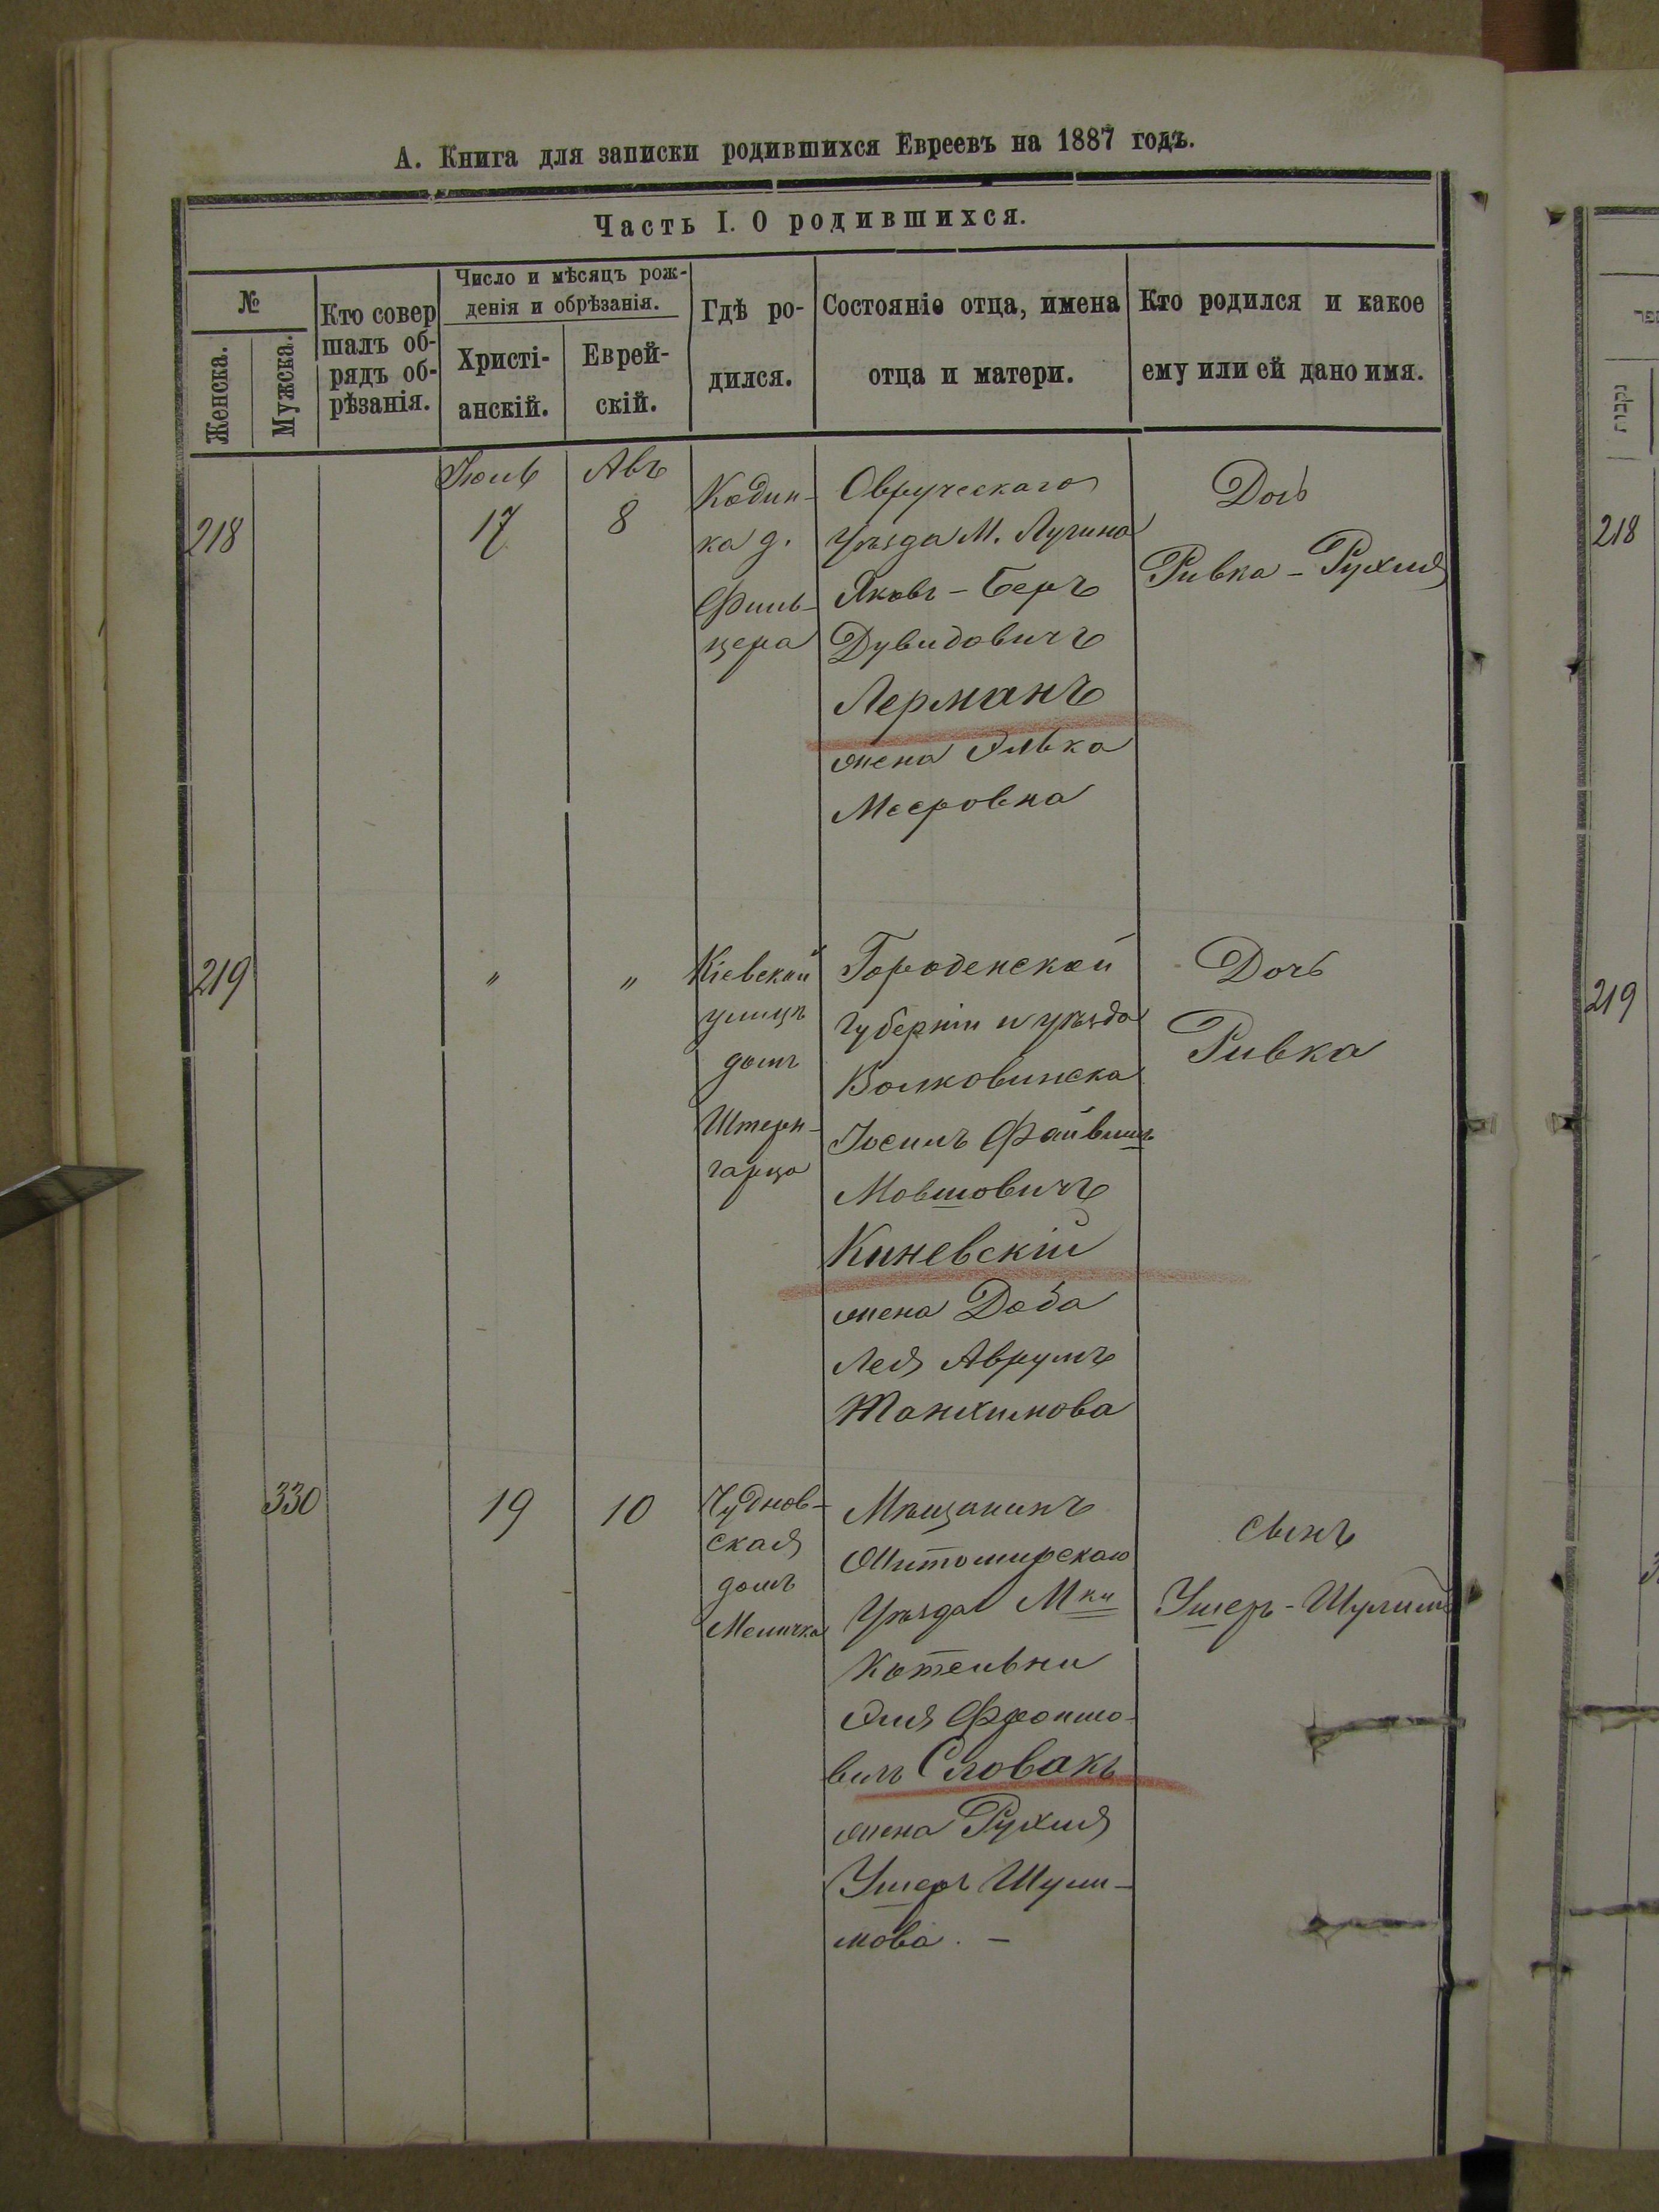 А. Книга для записки родившихся Евреевъ на 1887 годъ.
Часть I. О родившихся.
№
Женска.
Мужска.
Кто совер
шалъ об-
рядъ об-
рѣзанія.
Число и мѣсяцъ рож-
денія и обрѣзанія.
Христі-
анскій.
Еврей-
скій.
Гдѣ ро-
дился.
Состояніе отца, имена
отца и матери.
Кто родился и какое
ему или ей дано имя.
218
Іюль
17
Авъ
8
Кодин-
ка д.
Филь-
цера
Овручскаго
Уѣзда М. Лугина
Яковъ-Беръ
Дувидовичъ
Лерманъ
жена Элька
Мееровна
Дочь
Ривка-Рухля
219
"
"
Кіевской
улицѣ
домъ
Штерн-
гарца
Городенской
губерніи и уѣзда
Волковинска
Іосипъ Файвишъ
Мовшовичъ
Киневскій
жена Доба
Лея Аврумъ
Танхимова
Дочь
Ривка
330
19
10
Чуднов-
ская
домъ
Меличка
Мѣщанинъ
Житомирскаго
Уѣзда Мки
Котельни
Эля Фроимо-
вичъ Словакъ
жена Рухля
Ушеръ Шули-
мова. -
сынъ
Ушеръ-Шулимъ
218
219
נקבות